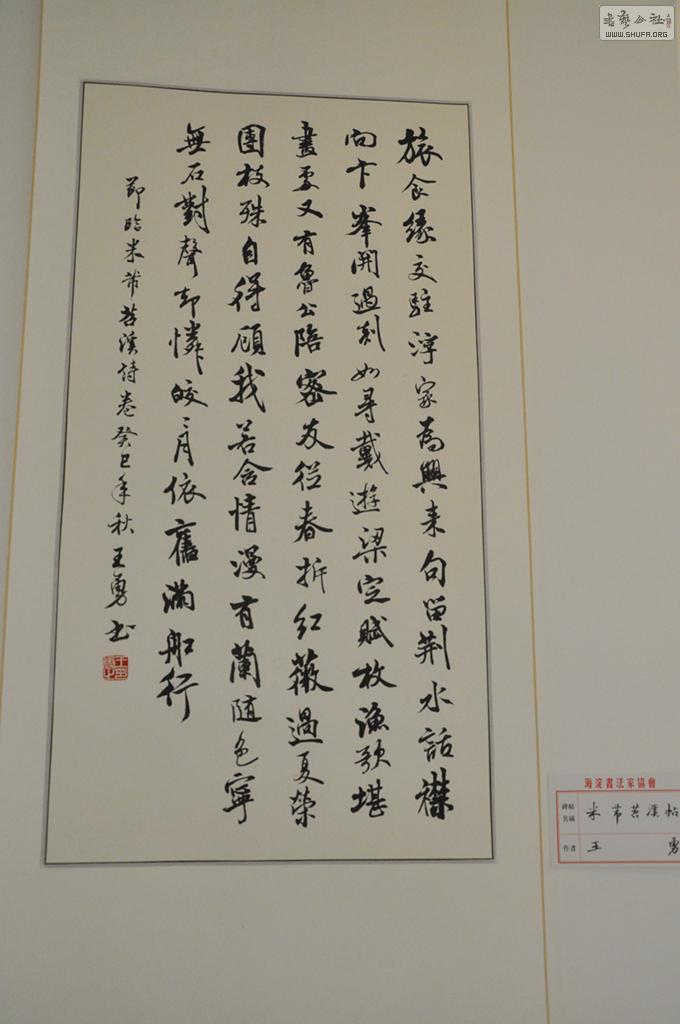 旅食緣交駐浮家為興来句留荆水話襟
向卞峯開過剡如尋戴遊梁定賦枚漁歌堪
畫處又有魯公陪密友從春拆紅薇過夏榮
團枝殊自得顧我若含情漫有蘭随色寧
無石對聲却憐皎〻月依舊滿船行
節臨米芾苕溪詩卷癸巳年秋王勇书
海淀書法家協會
碑帖名稱 米芾苕溪帖
作者 王勇
書藝公社
WWW.SHUFA.ORG